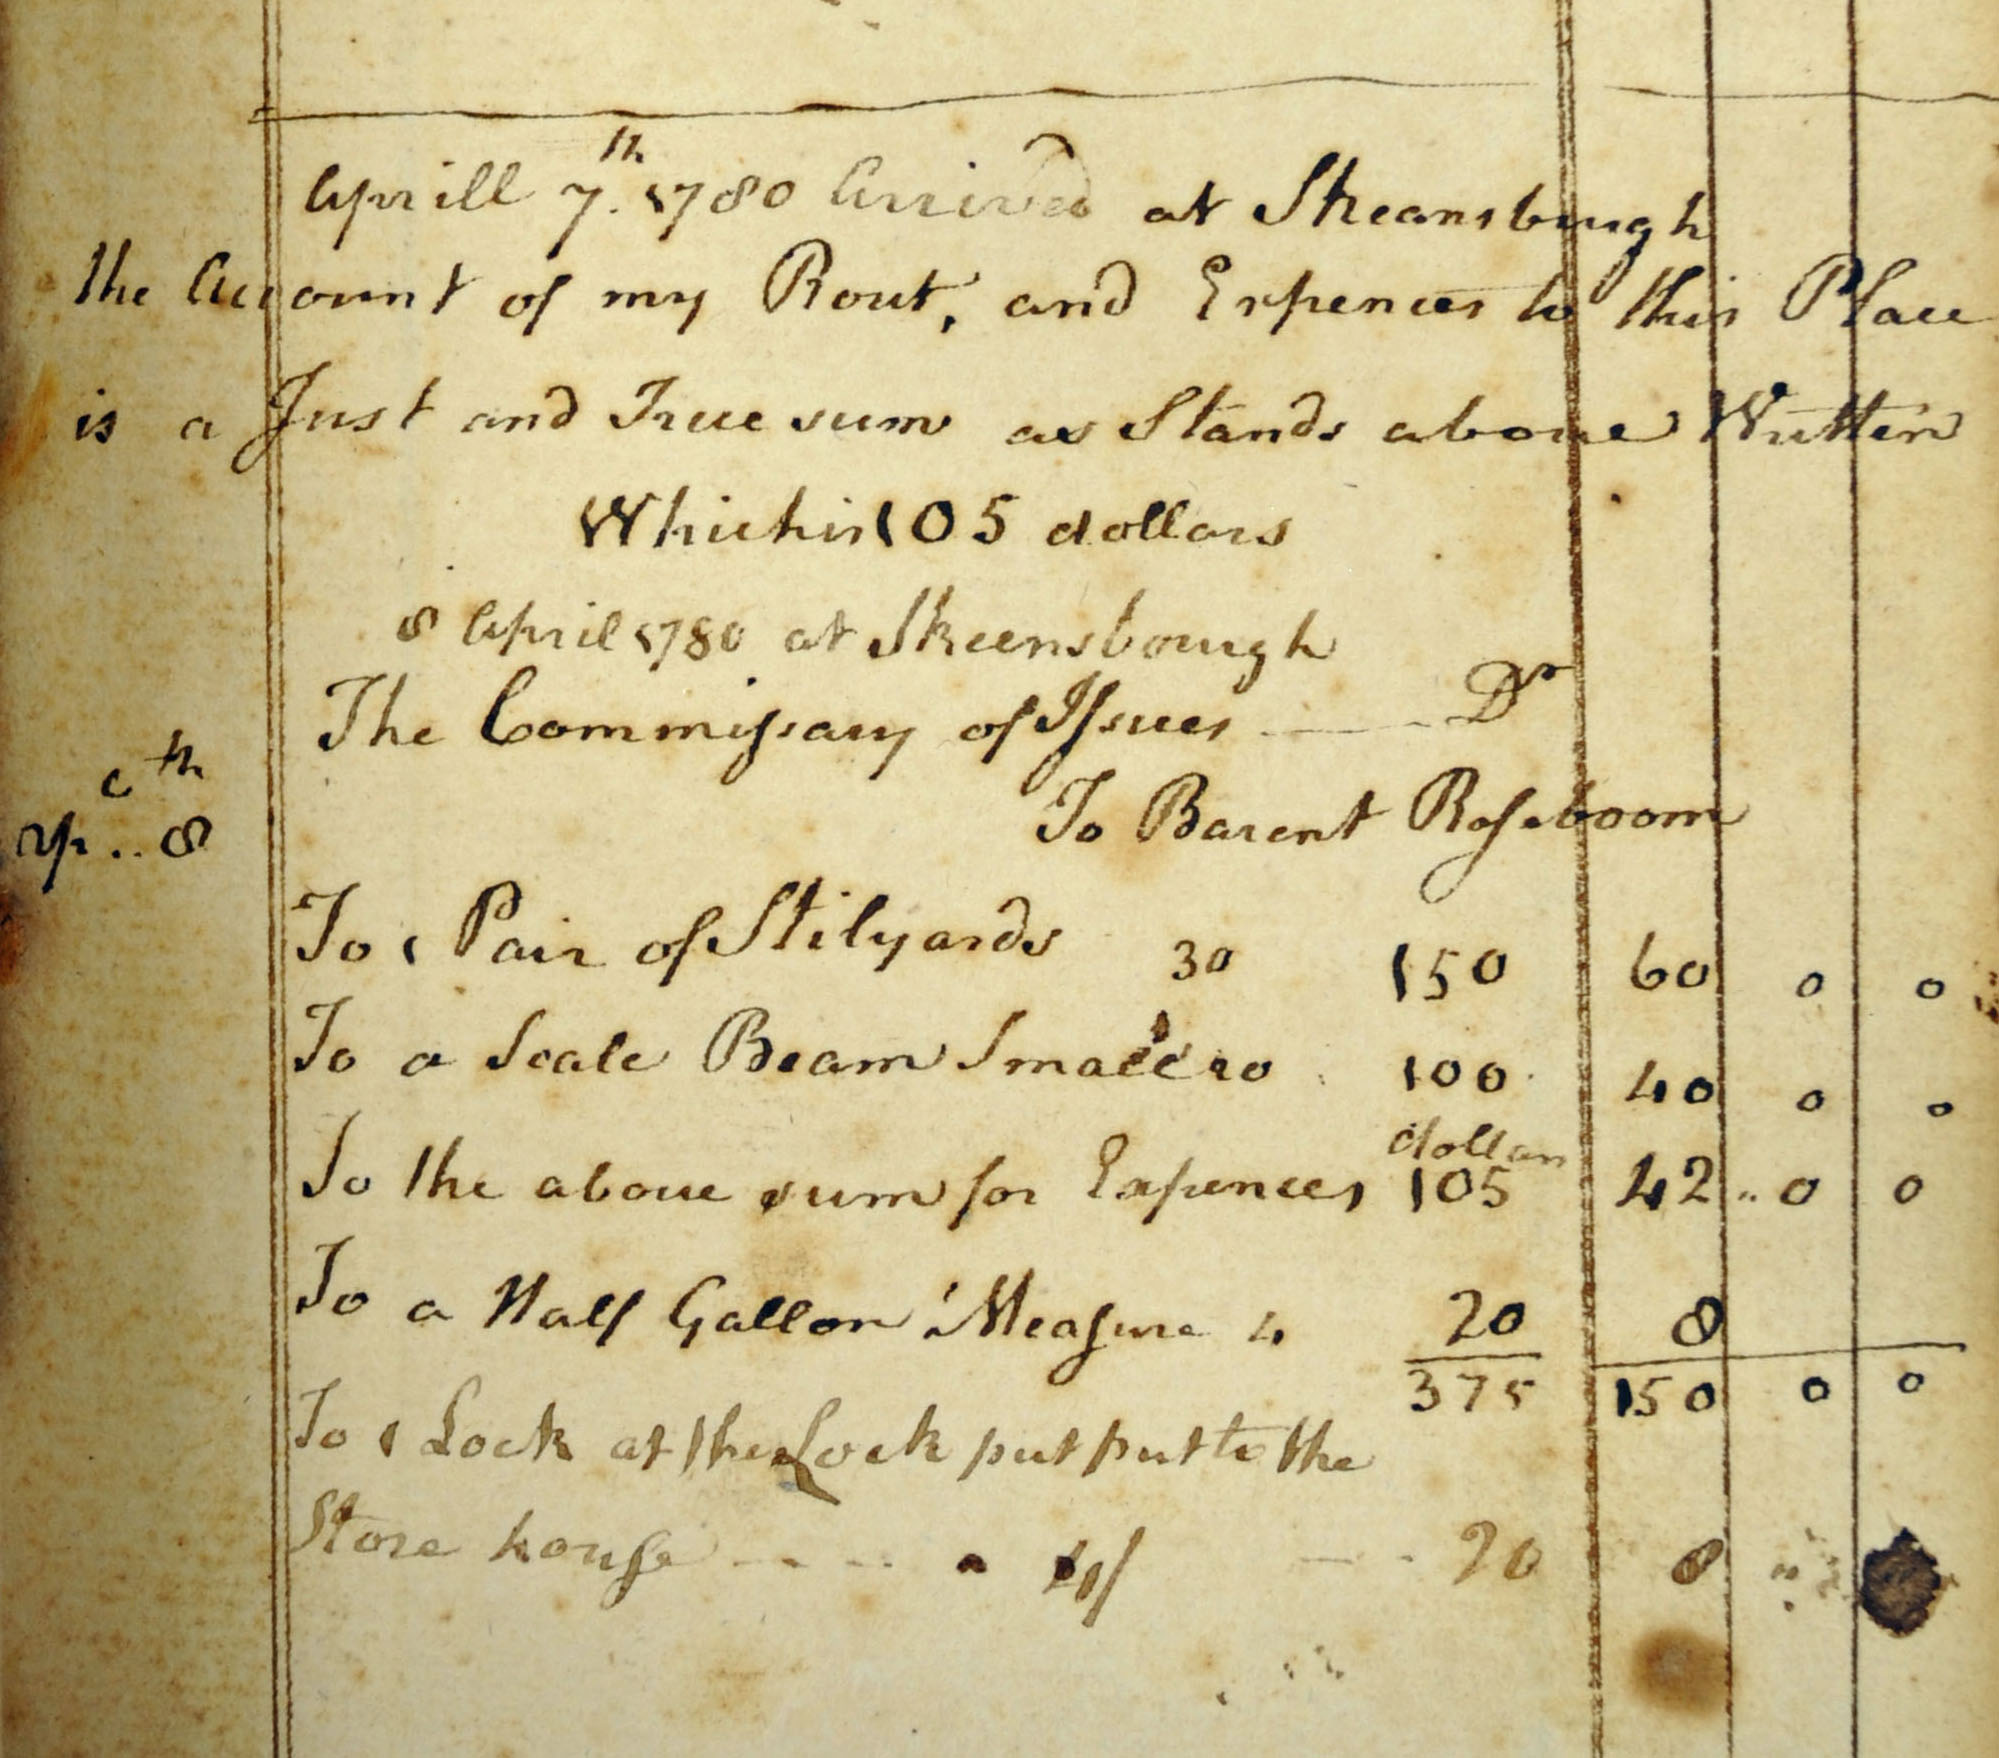 Aprill 7th. 1780 Arrived at Skeansbrugh
the Account of my Rout, and Expences to this Place
is a Just and True sum as Stands above Written
Which is 105 dollars
8 April 1780 at Skeensbough
The Commissary of Issues —— Dr
To Barent Roseboom
th
.. 8
To 1 Pair of Stilyards 30 150 60 0 0
To a Scale Beam Small 20 100 40 0 0
dollars
To the above sum for Expences 105 42 .. 0 0
To a Half Gallon Measure 4 20 8
375 150 0 0
To 1 Lock at the Lock put put to the
Store house - - - - a 4/ - - 20 8